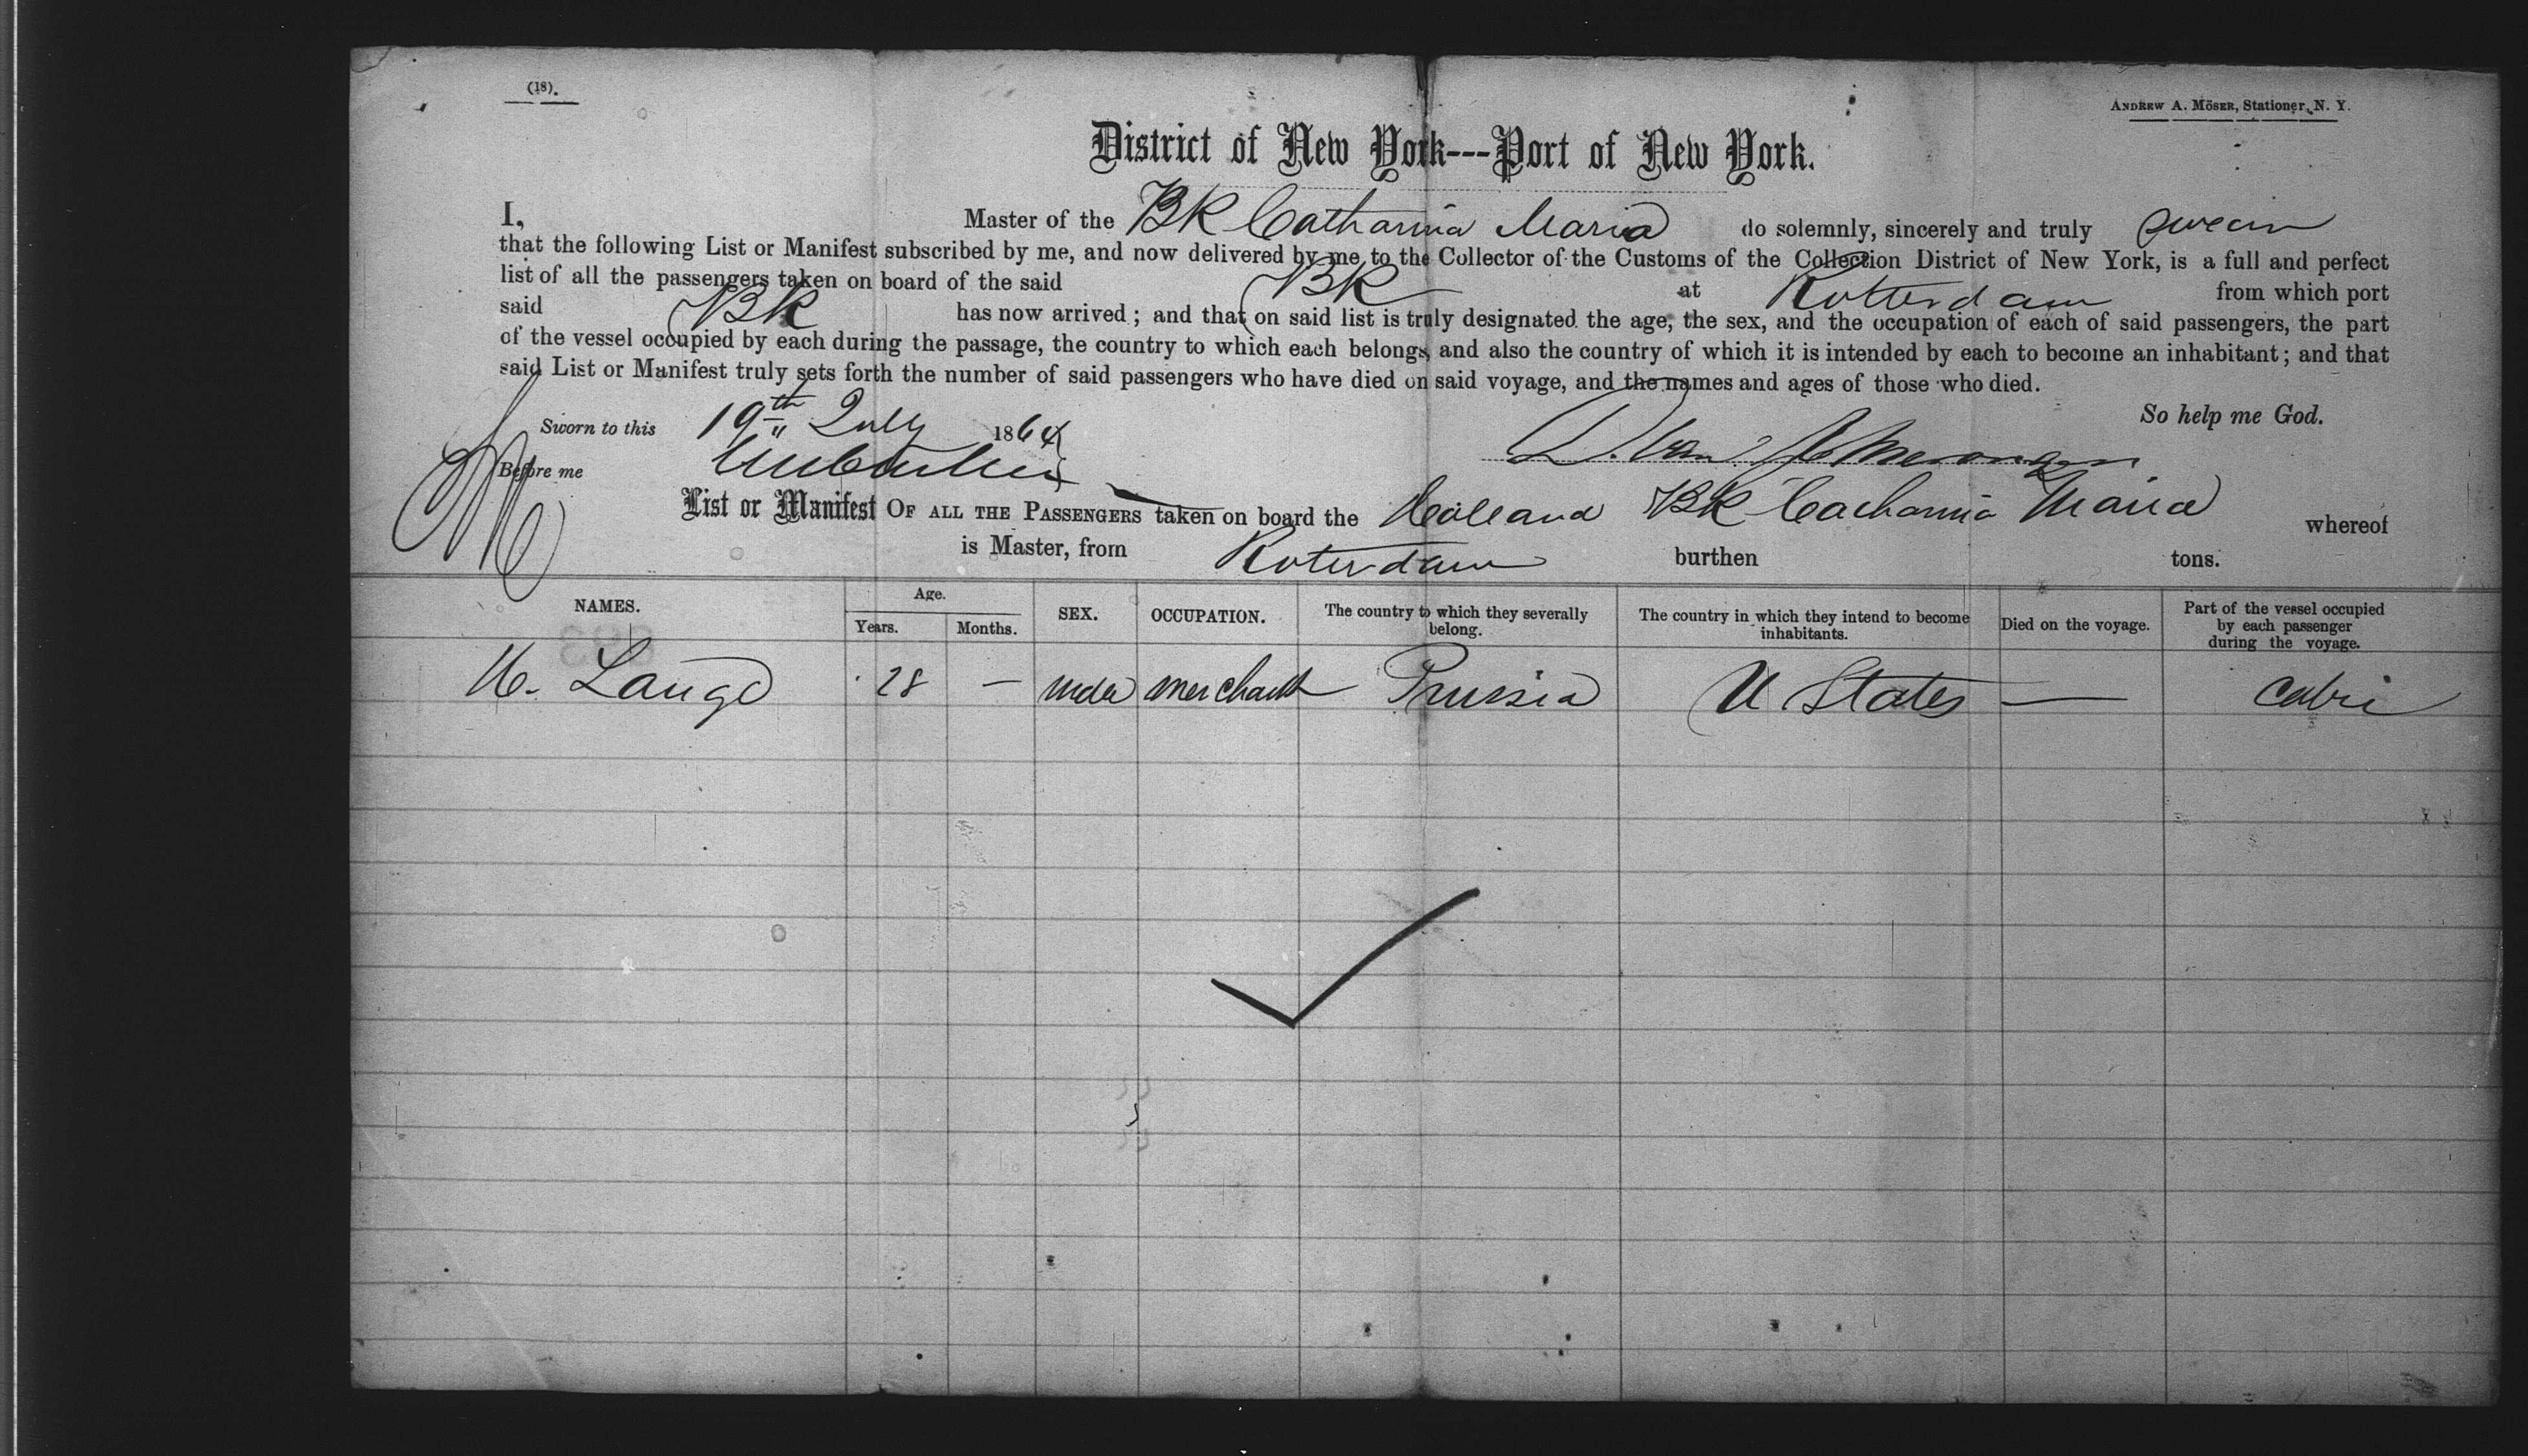 (18).
ANDREW A. MÖSER, Stationer, N. Y.
District of New York---Port of New York.
I, Master of the BK Catharina Maria do solemnly, sincerely and truly swear
that the following List or Manifest subscribed by me, and now delivered by me to the Collector of the Customs of the Collection District of New York, is a full and perfect
list of all the passengers taken on board of the said BK at Rotterdam from which port
said BK has now arrived; and that on said list is truly designated the age, the sex, and the occupation of each of said passengers, the part
of the vessel occupied by each during the passage, the country to which each belongs, and also the country of which it is intended by each to become an inhabitant; and that
said List or Manifest truly sets forth the number of said passengers who have died on said voyage, and the names and ages of those who died.
So help me God.
Sworn to this 19th July 1864
Before me
List or Manifest OF ALL THE PASSENGERS taken on board the Holland BK Catharina Maria whereof
is Master, from Roterdam burthen tons.
NAMES. Age. Years. Months. SEX. OCCUPATION. The country to which they severally belong. The country in which they intend to become inhabitants. Died on the voyage. Part of the vessel occupied by each passenger during the voyage.
Lange 28 — male merchant Prussia U States — Cabin